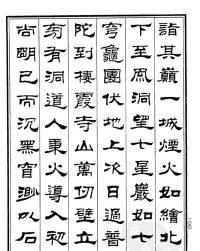 詣其巔一城煙火如繪北
下至風洞望七星巖如七
穹龜團伏地上次日過普
陀到棲霞寺山萬仞壁立
旁有洞道人秉火導入初
尚明已而沉黑窅渺以石